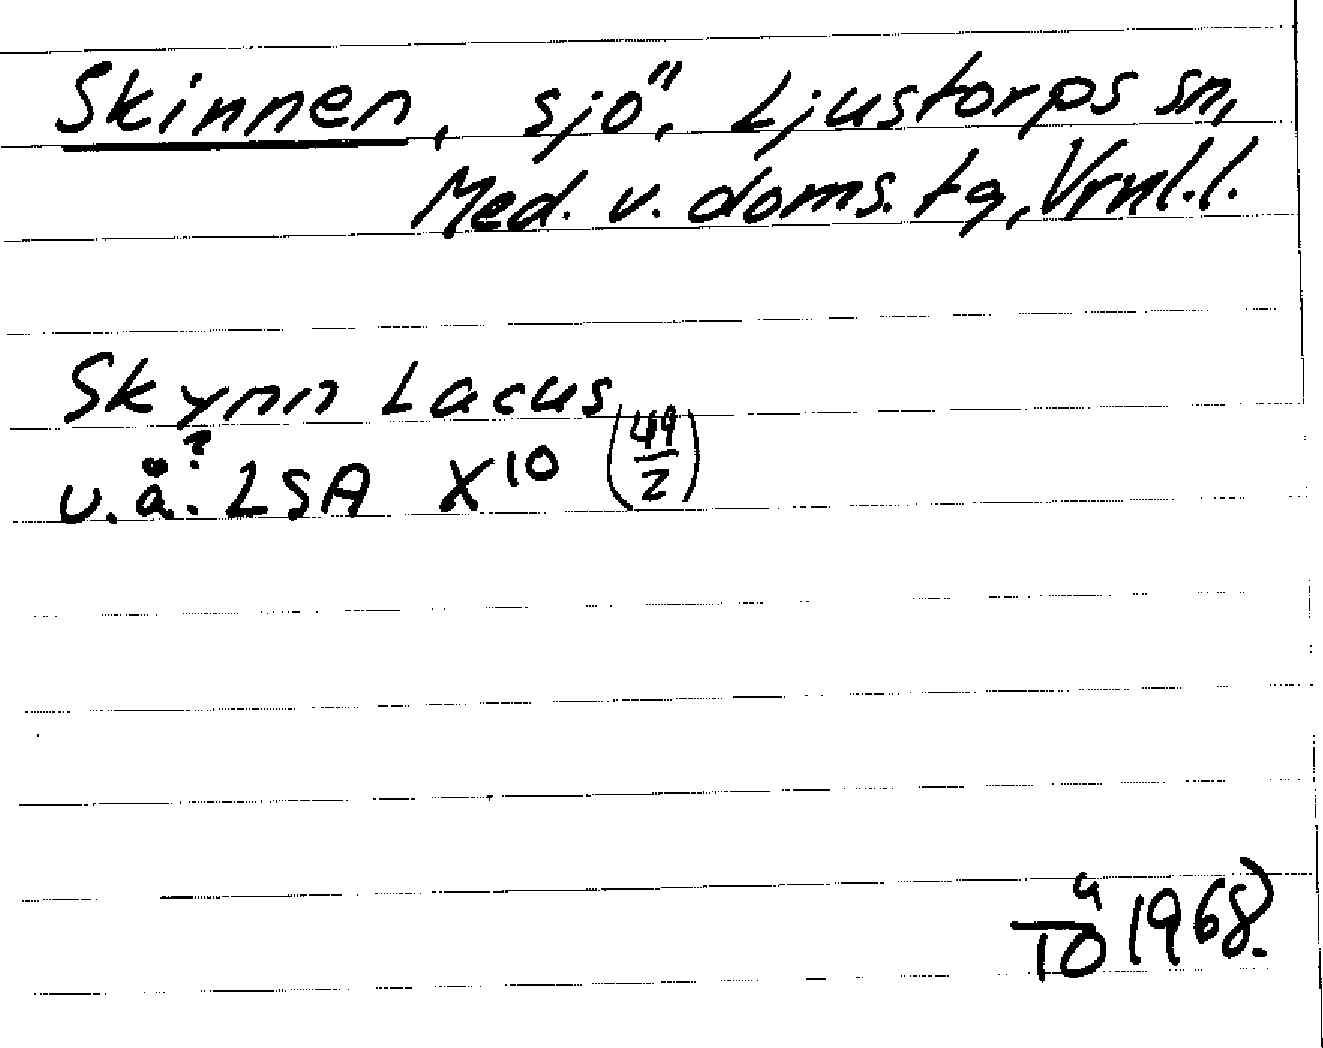 Skinnen, sjö, Ljustorps sn,
Med. v. doms. tg, Vrnl.l.
Skynn Lacus
u.å.? LSA X¹⁰ (49/2)
TÖ 1968.